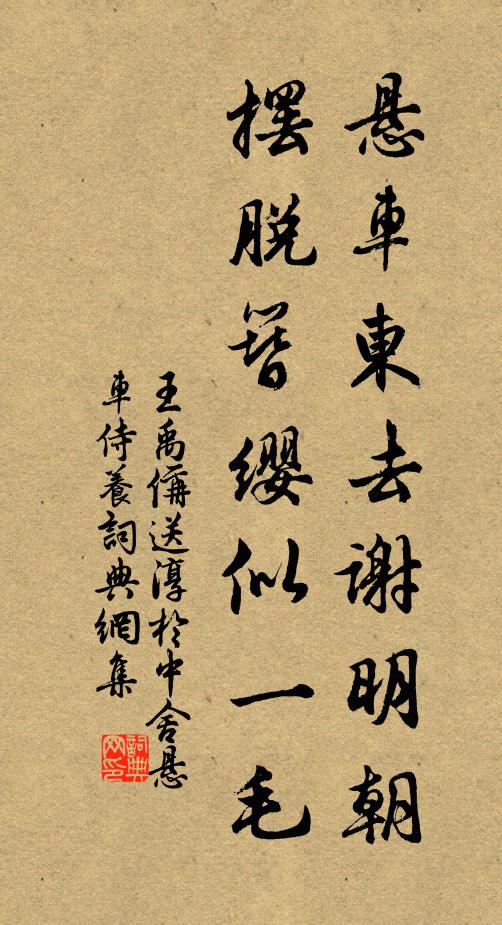 悬車東去谢明朝
摆脱簪缨似一毛
王禹偁送淳於中舍悬
車侍養詞典網集
詞典网印